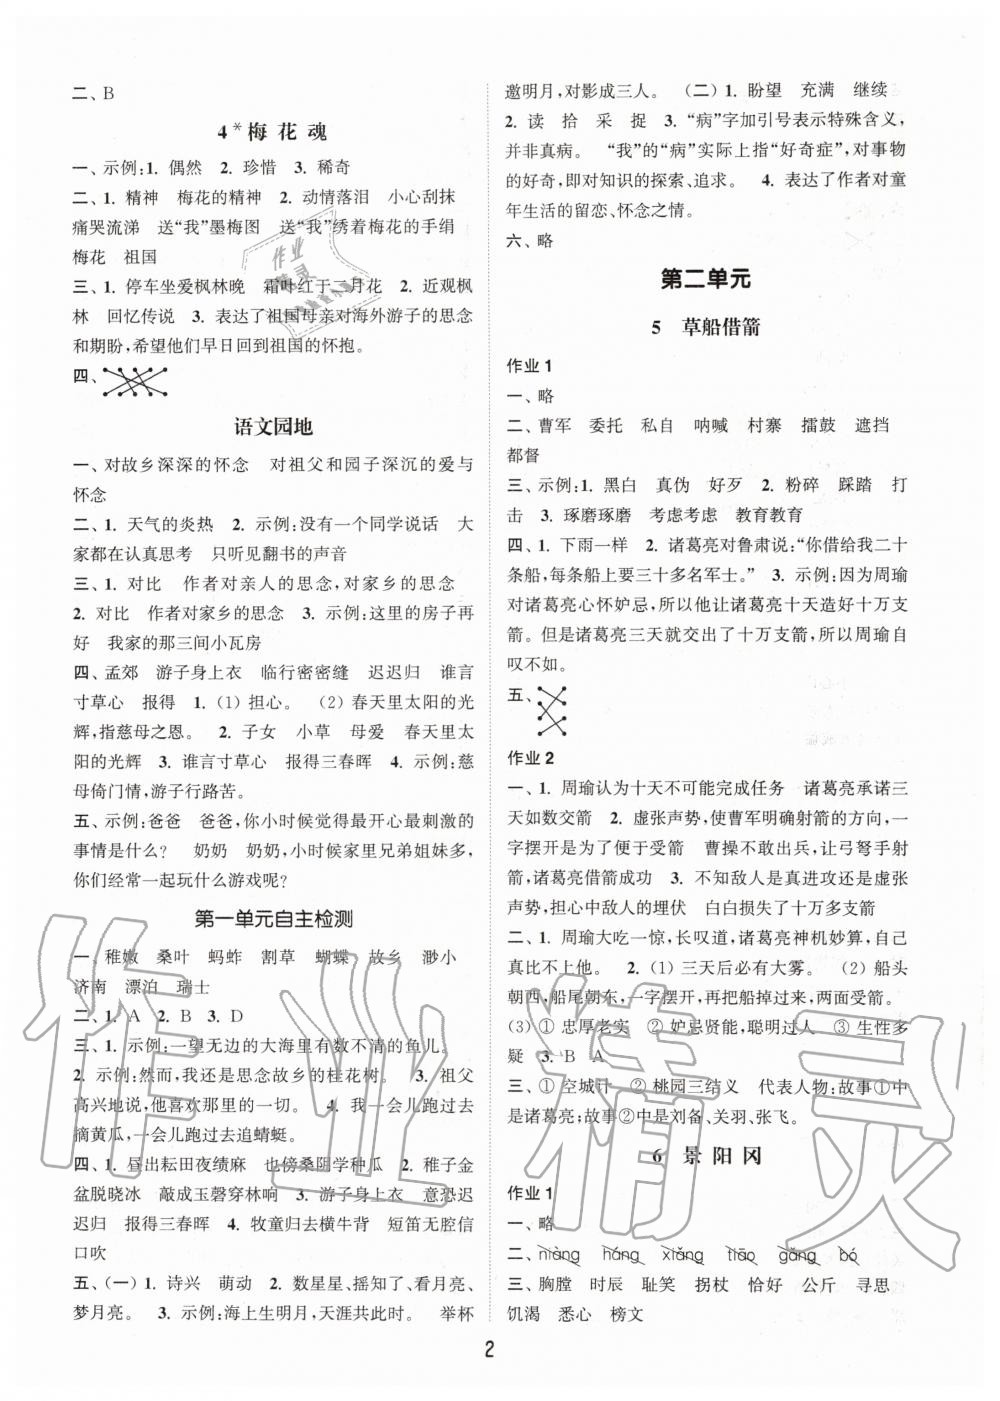 二、B
4*梅花魂
一、示例:1. 偶然　2. 珍惜　3. 稀奇
二、1. 精神　梅花的精神　2. 动情落泪　小心刮抹
痛哭流涕　送“我”墨梅图　送“我”绣着梅花的手绢
梅花　祖国
三、1. 停车坐爱枫林晚　霜叶红于二月花　2. 近观枫
林　回忆传说　3. 表达了祖国母亲对海外游子的思念
和期盼,希望他们早日回到祖国的怀抱。
四、
语文园地
一、对故乡深深的怀念　对祖父和园子深沉的爱与
怀念
二、1. 天气的炎热　2. 示例:没有一个同学说话　大
家都在认真思考　只听见翻书的声音
三、1. 对比　作者对亲人的思念,对家乡的思念
2. 对比　作者对家乡的思念　3. 示例:这里的房子再
好　我家的那三间小瓦房
四、孟郊　游子身上衣　临行密密缝　迟迟归　谁言
寸草心　报得　1.(1) 担心。　(2) 春天里太阳的光
辉,指慈母之恩。　2. 子女　小草　母爱　春天里太
阳的光辉　3. 谁言寸草心　报得三春晖　4. 示例:慈
母倚门情,游子行路苦。
五、示例:爸爸　爸爸,你小时候觉得最开心最刺激的
事情是什么?　奶奶　奶奶,小时候家里兄弟姐妹多,
你们经常一起玩什么游戏呢?
第一单元自主检测
一、稚嫩　桑叶　蚂蚱　割草　蝴蝶　故乡　渺小
济南　漂泊　瑞士
二、1. A　2. B　3. D
三、1. 示例:一望无边的大海里有数不清的鱼儿。
2. 示例:然而,我还是思念故乡的桂花树。　3. 祖父
高兴地说,他喜欢那里的一切。　4. 我一会儿跑过去
摘黄瓜,一会儿跑过去追蜻蜓。
四、1. 昼出耘田夜绩麻　也傍桑阴学种瓜　2. 稚子金
盆脱晓冰　敲成玉磬穿林响　3. 游子身上衣　意恐迟
迟归　报得三春晖　4. 牧童归去横牛背　短笛无腔信
口吹
五、(一) 1. 诗兴　萌动　2. 数星星、摇知了、看月亮、
梦月亮。　3. 示例:海上生明月,天涯共此时。　举杯
邀明月,对影成三人。　(二) 1. 盼望　充满　继续
2. 读　拾　采　捉　3. “病”字加引号表示特殊含义,
并非真病。　“我”的“病”实际上是指“好奇症”,对事物
的好奇,即对知识的探索、追求。　4. 表达了作者对童
年生活的留恋、怀念之情。
六、略
第二单元
5　草船借箭
作业 1
一、略
二、曹军　委托　私自　呐喊　村寨　擂鼓　遮挡
都督
三、示例:1. 黑白　真伪　好歹　2. 粉碎　踩踏　打
击　3. 琢磨琢磨　考虑考虑　教育教育
四、1. 下雨一样　2. 诸葛亮对鲁肃说:“你借给我二十
条船,每条船上要三十多名军士。”　3. 示例:因为周瑜
对诸葛亮心怀妒忌,所以他让诸葛亮十天造好十万支
箭。但是诸葛亮三天就交出了十万支箭,所以周瑜自
叹不如。
五、
作业 2
一、1. 周瑜认为十天不可能完成任务　诸葛亮承诺三
天如数交箭　2. 虚张声势,使曹军明确射箭的方向,一
字摆开是为了便于受箭　曹操不敢出兵,让弓弩手射
箭,诸葛亮借箭成功　3. 不知敌人是真进攻还是虚张
声势,担心中敌人的埋伏　白白损失了十万多支箭
二、1. 周瑜大吃一惊,长叹道,诸葛亮神机妙算,自己
真比不上他。　2.(1) 三天后必有大雾。　(2) 船头
朝西,船尾朝东,一字摆开,再把船掉过来,两面受箭。
(3) ① 忠厚老实　② 妒忌贤能,聪明过人　③ 生性多
疑　3. B　A
三、① 空城计　② 桃园三结义　代表人物:故事①中
是诸葛亮;故事②中是刘备、关羽、张飞。
6　景阳冈
作业 1
一、略
二、niàng　háng　xiǎng　tiāo　gǎng　bó
三、胸膛　时辰　耻笑　拐杖　恰好　公斤　寻思
饥渴　悉心　榜文
2
作业精灵